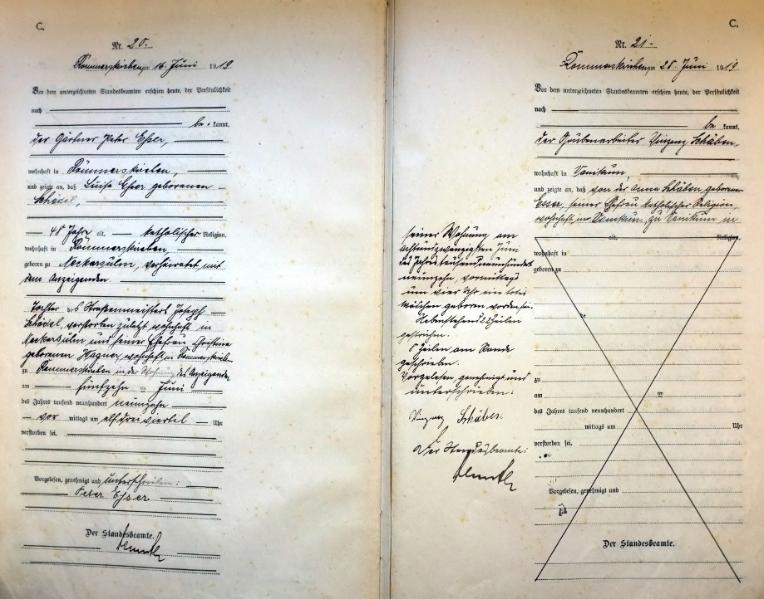 C.
Nr. 20.
Rommerskirchen, am 16. Juni 1919
Vor dem unterzeichneten Standesbeamten erschien heute, der Persönlichkeit
nach
be kannt,
der Gärtner Peter Esser,
wohnhaft in Rommerskirchen,
und zeigte an, daß Luise Esser geborenen
48 Jahre alt, katholischer Religion,
wohnhaft in Rommerskirchen,
geboren zu Neckarsulm, verheiratet mit
dem Anzeigenden
Tochter des Straßenmeisters Joseph
verstorben zuletzt wohnhaft in
Neckarsulm und seiner Ehefrau Christine
geborenen Wagner, wohnhaft in
zu Rommerskirchen in der Wohnung des Anzeigenden,
am fünfzehn Juni
des Jahres tausend neunhundert neunzehn
vor mittags um elf dreiviertel Uhr
verstorben sei.
Vorgelesen, genehmigt und unterschrieben:
Peter Esser
Der Standesbeamte.
C.
Nr. 21.
Rommerskirchen, am 28. Juni 1919
Vor dem unterzeichneten Standesbeamten erschien heute, der Persönlichkeit
nach
be kannt,
der Grubenarbeiter Vinzenz Schäben,
wohnhaft in Vanikum,
und zeigte an, daß von der Anna Schäben geborenen
Esser, seiner Ehefrau katholischer Religion,
wohnhaft in Vanikum, zu Vanikum in
seiner Wohnung am
achtundzwanzigsten Juni
des Jahres tausend neunhundert
neunzehn, vormittags
um vier Uhr ein totes
Mädchen geboren worden sei.
gestrichen.
8 Zeilen am Rande
geschrieben.
Vorgelesen, genehmigt und
unterschrieben:
Vinzenz Schäben
Der Standesbeamte:
alt, Religion,
wohnhaft in
geboren zu
zu
am
des Jahres tausend neunhundert
mittags um Uhr
verstorben sei.
Vorgelesen, genehmigt und
Der Standesbeamte.